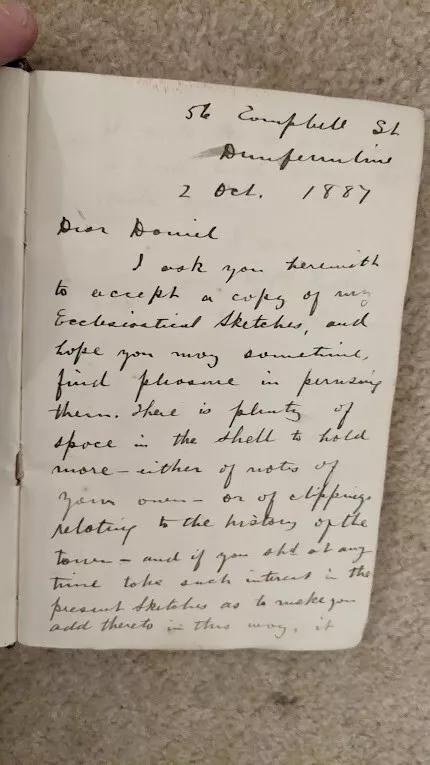 56 Campbell St
Dunfermline
2 Oct. 1887
Dear Daniel
I ask you herewith
to accept a copy of my
Ecclesiastical Sketches, and
hope you may sometime,
find pleasure in perusing
them. There is plenty of
space in the shell to hold
more – either of notes of
your own – or of clippings
relating to the history of the
town – and if you shd at any
time take such interest in the
present Sketches as to make you
add thereto in this way, it